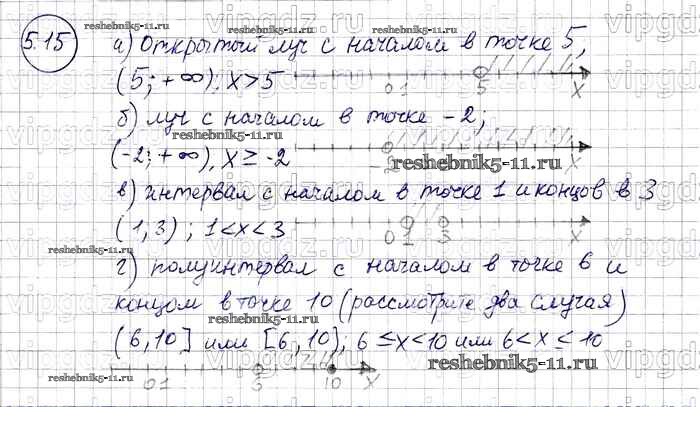 5.15
reshebnik5-11.ru
а) Открытый луч с началом в точке 5,
(5; +∞), x>5
0 1 5 X
б) луч с началом в точке -2;
reshebnik5-11.ru
(-2; +∞), x ≥ -2
-2 0 1 X
reshebnik5-11.ru
в) интервал с началом в точке 1 и концов в 3
(1, 3) ; 1<x<3
0 1 3 X
reshebnik5-11.ru
г) полуинтервал с началом в точке 6 и
концом в точке 10 (рассмотрите два случая)
reshebnik5-11.ru
(6, 10] или [6, 10); 6 ≤ x<10 или 6<x ≤ 10
reshebnik5-11.ru
reshebnik5-11.ru
0 1 10 X
vipgdz.ru